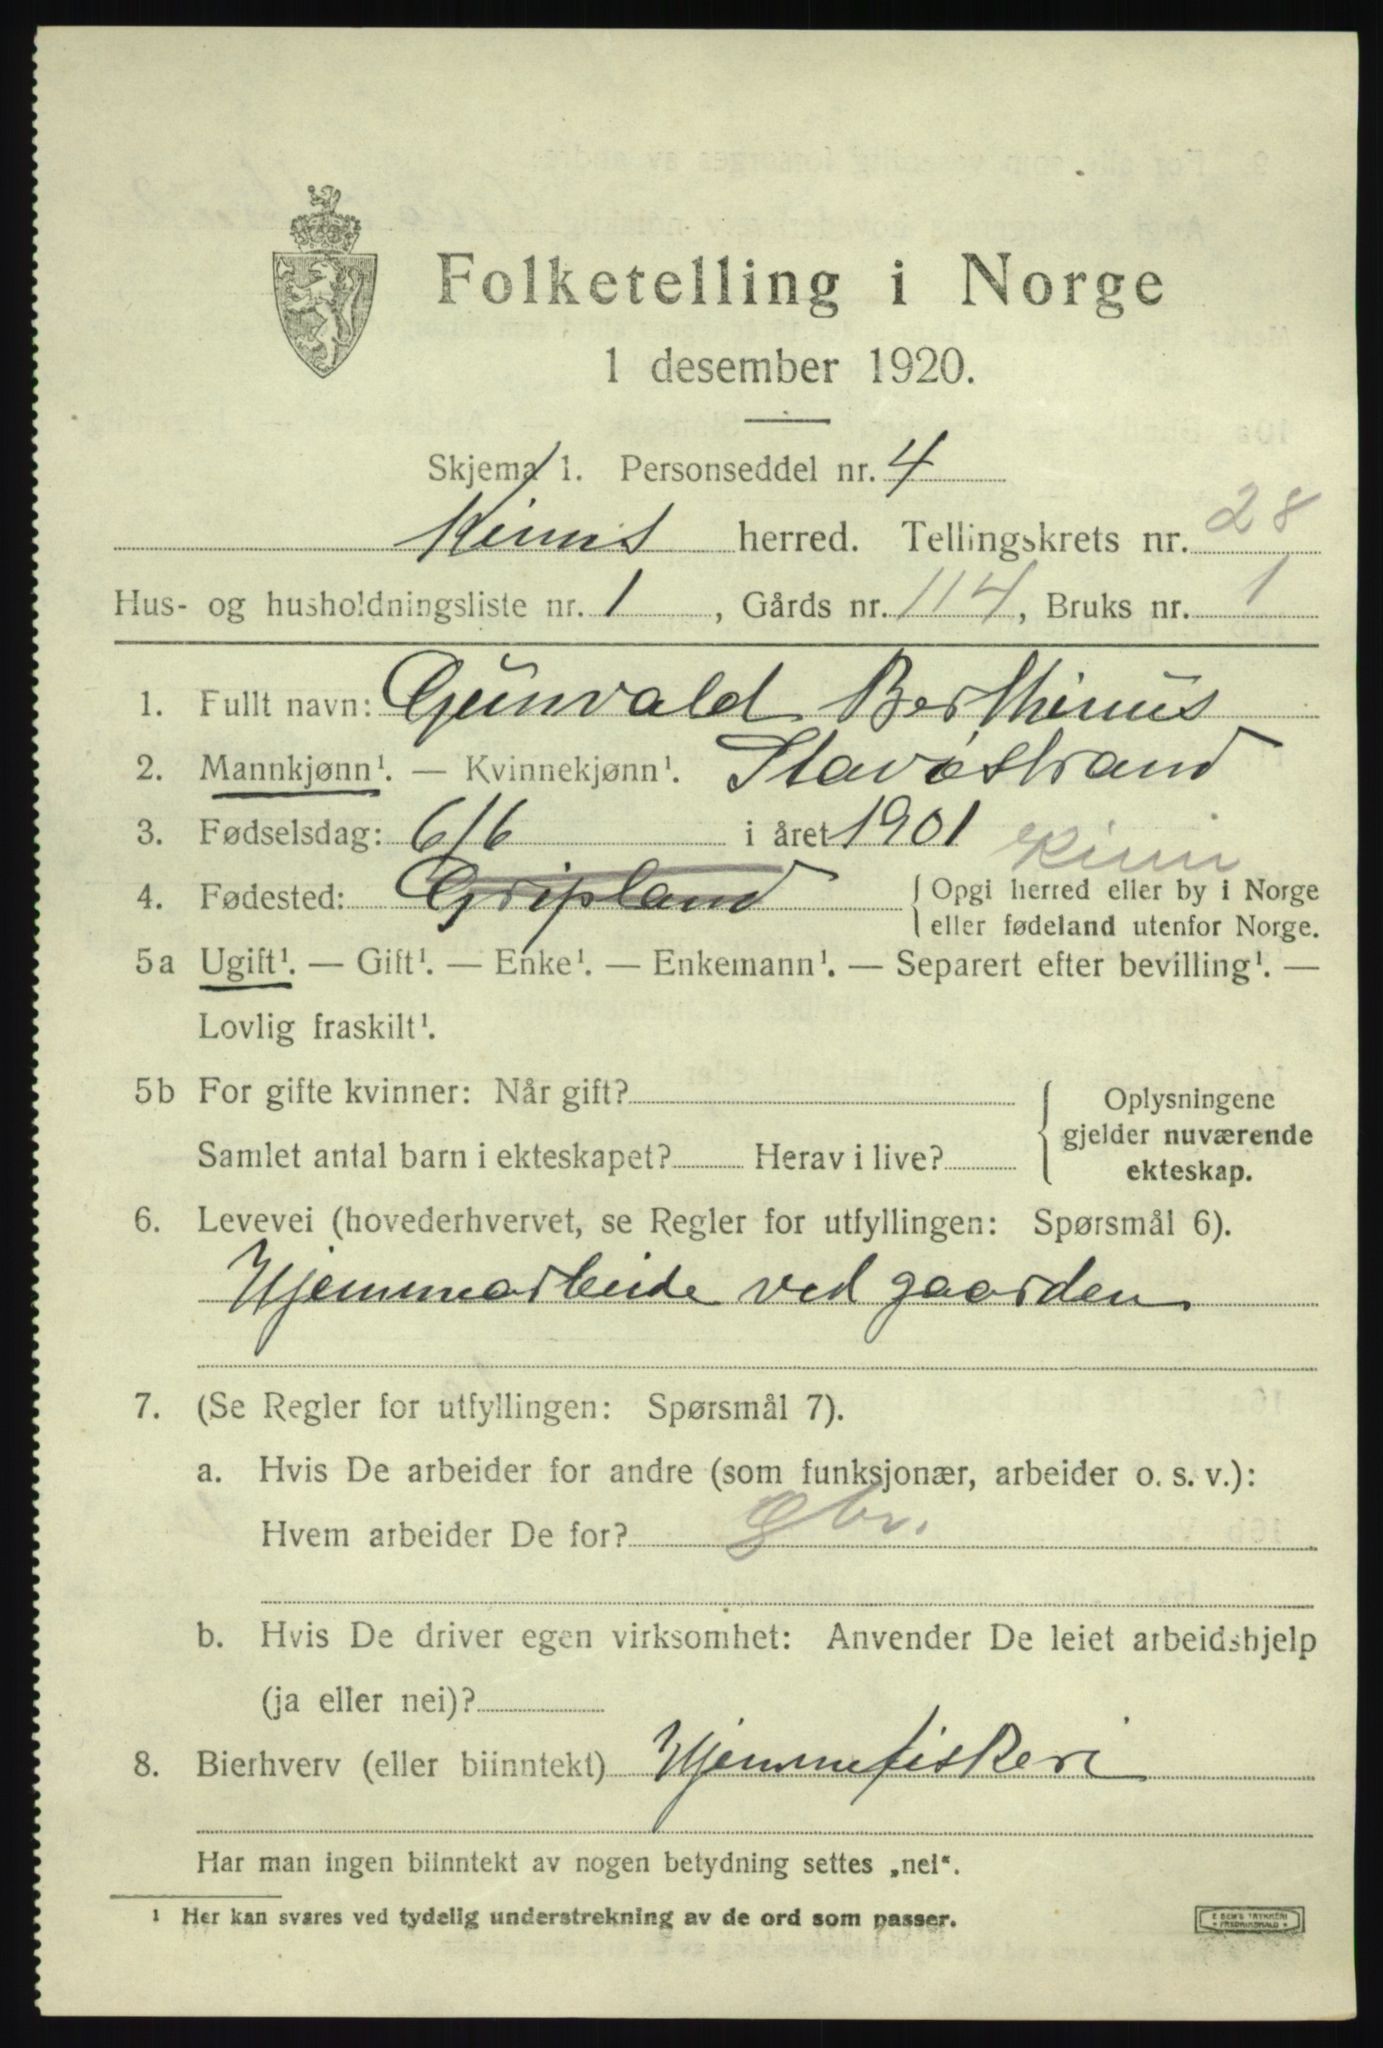 Folketelling i Norge
1 desember 1920.
Skjema 1. Personseddel nr. 4
Kinns herred. Tellingskrets nr. 28
Hus- og husholdningsliste nr. 1, Gårds nr. 114, Bruks nr. 1
1. Fullt navn: Gunvald Berthinus
2. Mannkjønn¹. — Kvinnekjønn¹. Stavøstrand
3. Fødselsdag: 6/6 i året 1901
Kinn
4. Fødested: Gripland { Opgi herred eller by i Norge
eller fødeland utenfor Norge.
5a Ugift¹. — Gift¹. — Enke¹. — Enkemann¹. — Separert efter bevilling¹. —
Lovlig fraskilt¹.
5b For gifte kvinner: Når gift? { Oplysningene
gjelder nuværende
Samlet antal barn i ekteskapet? Herav i live?
ekteskap.
6. Levevei (hovederhvervet, se Regler for utfyllingen: Spørsmål 6).
Hjemmearbeide ved gaarden
7. (Se Regler for utfyllingen: Spørsmål 7).
a. Hvis De arbeider for andre (som funksjonær, arbeider o. s. v.):
Hvem arbeider De for? Gbr.
b. Hvis De driver egen virksomhet: Anvender De leiet arbeidshjelp
(ja eller nei)?
8. Bierhverv (eller biinntekt) Hjemmefiskeri
Har man ingen biinntekt av nogen betydning settes „nei“.
¹ Her kan svares ved tydelig understrekning av de ord som passer.